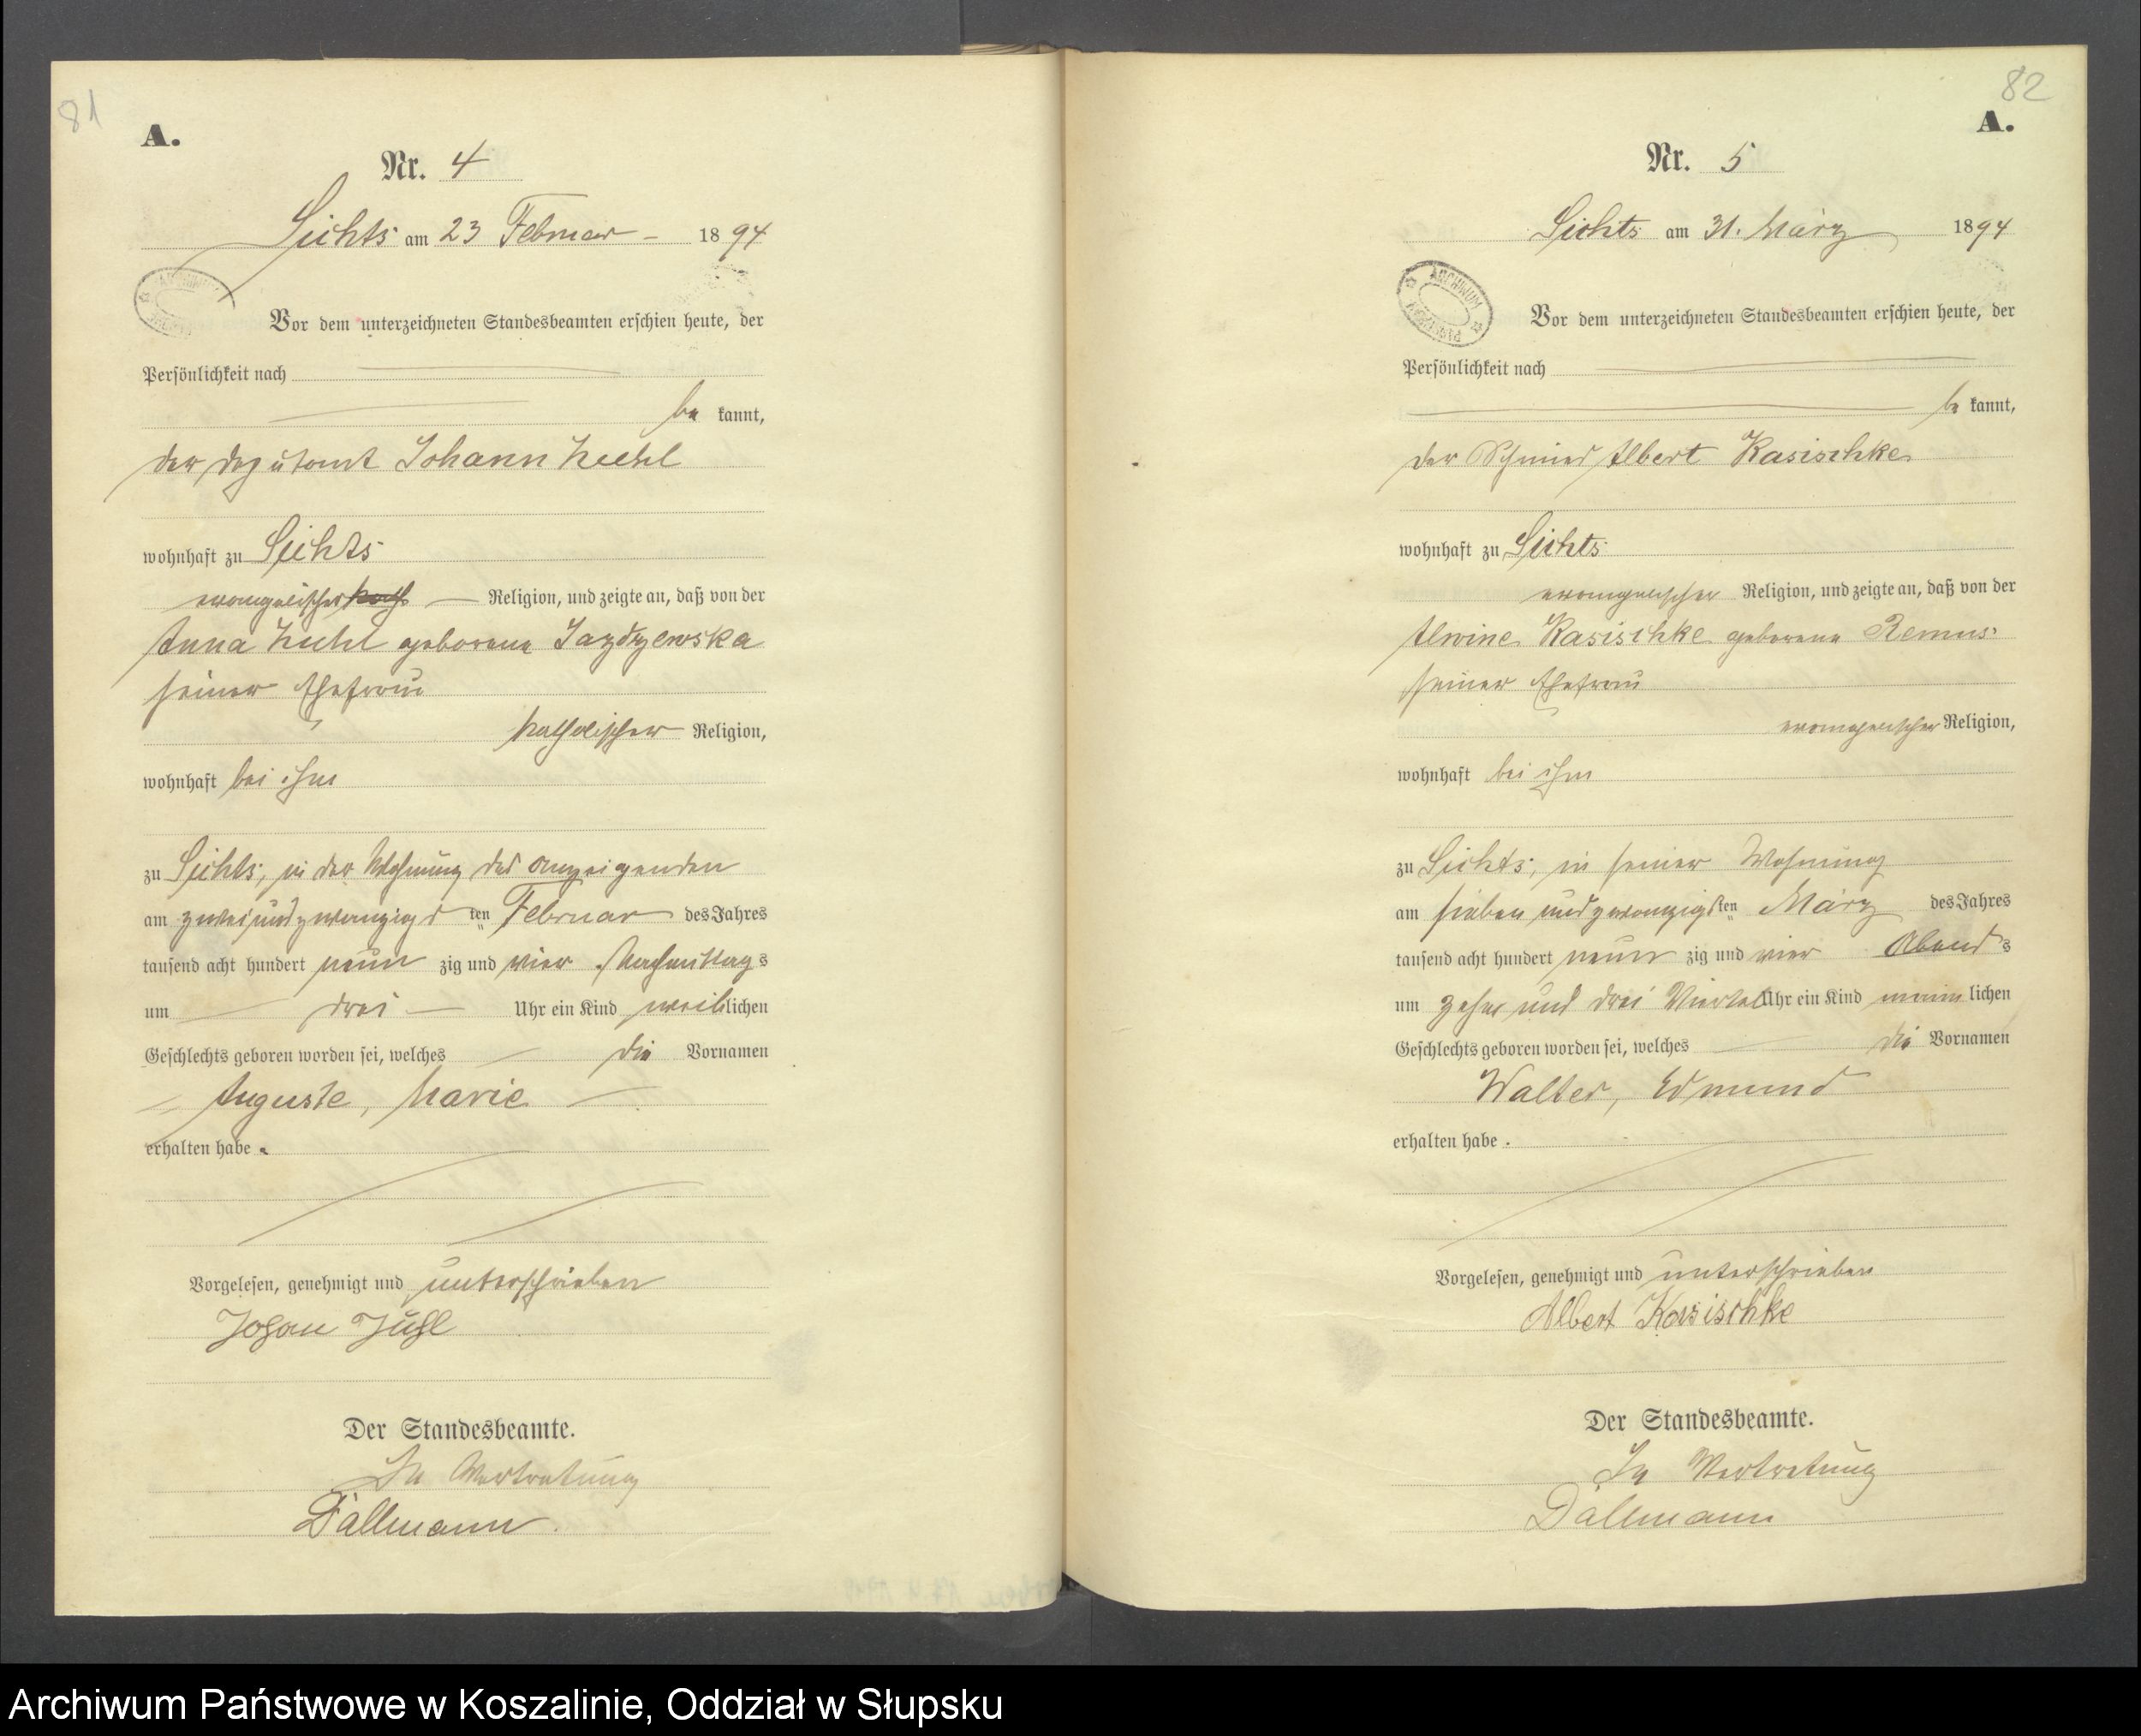 81
A.
Nr. 4
Sichts am 23 Februar 1894
Vor dem unterzeichneten Standesbeamten erschien heute, der
Persönlichkeit nach
be kannt,
der Deputant Johann
wohnhaft zu Sichts
evangelischer kath Religion, und zeigte an, daß von der
Anna geborene Jazdzewska
seiner Ehefrau
katholischer Religion,
wohnhaft bei ihm
zu Sichts, in der Wohnung des Anzeigenden
am zweiundzwanzigsten Februar des Jahres
tausend acht hundert neun zig und vier Nachmittags
um drei Uhr ein Kind weiblichen
Geschlechts geboren worden sei, welches die Vornamen
Auguste, Marie
erhalten habe.
Vorgelesen, genehmigt und unterschrieben
Johan
Der Standesbeamte.
In Vertretung
Dallmann
82
A.
Nr. 5
Sichts am 31. März 1894
ARCHIWUM
Vor dem unterzeichneten Standesbeamten erschien heute, der
Persönlichkeit nach
be kannt,
der Schmied Albert Kasischke
wohnhaft zu Sichts
evangelischer Religion, und zeigte an, daß von der
Alwine Kasischke geborene Remus
seiner Ehefrau
evangelischer Religion,
wohnhaft bei ihm
zu Sichts, in seiner Wohnung
am sieben und zwanzigsten März des Jahres
tausend acht hundert neun zig und vier Abends
um zehn und drei Viertel Uhr ein Kind männlichen
Geschlechts geboren worden sei, welches die Vornamen
Walter, Edmund
erhalten habe.
Vorgelesen, genehmigt und unterschrieben
Albert Kasischke
Der Standesbeamte.
In Vertretung
Dallmann
Archiwum Państwowe w Koszalinie, Oddział w Słupsku